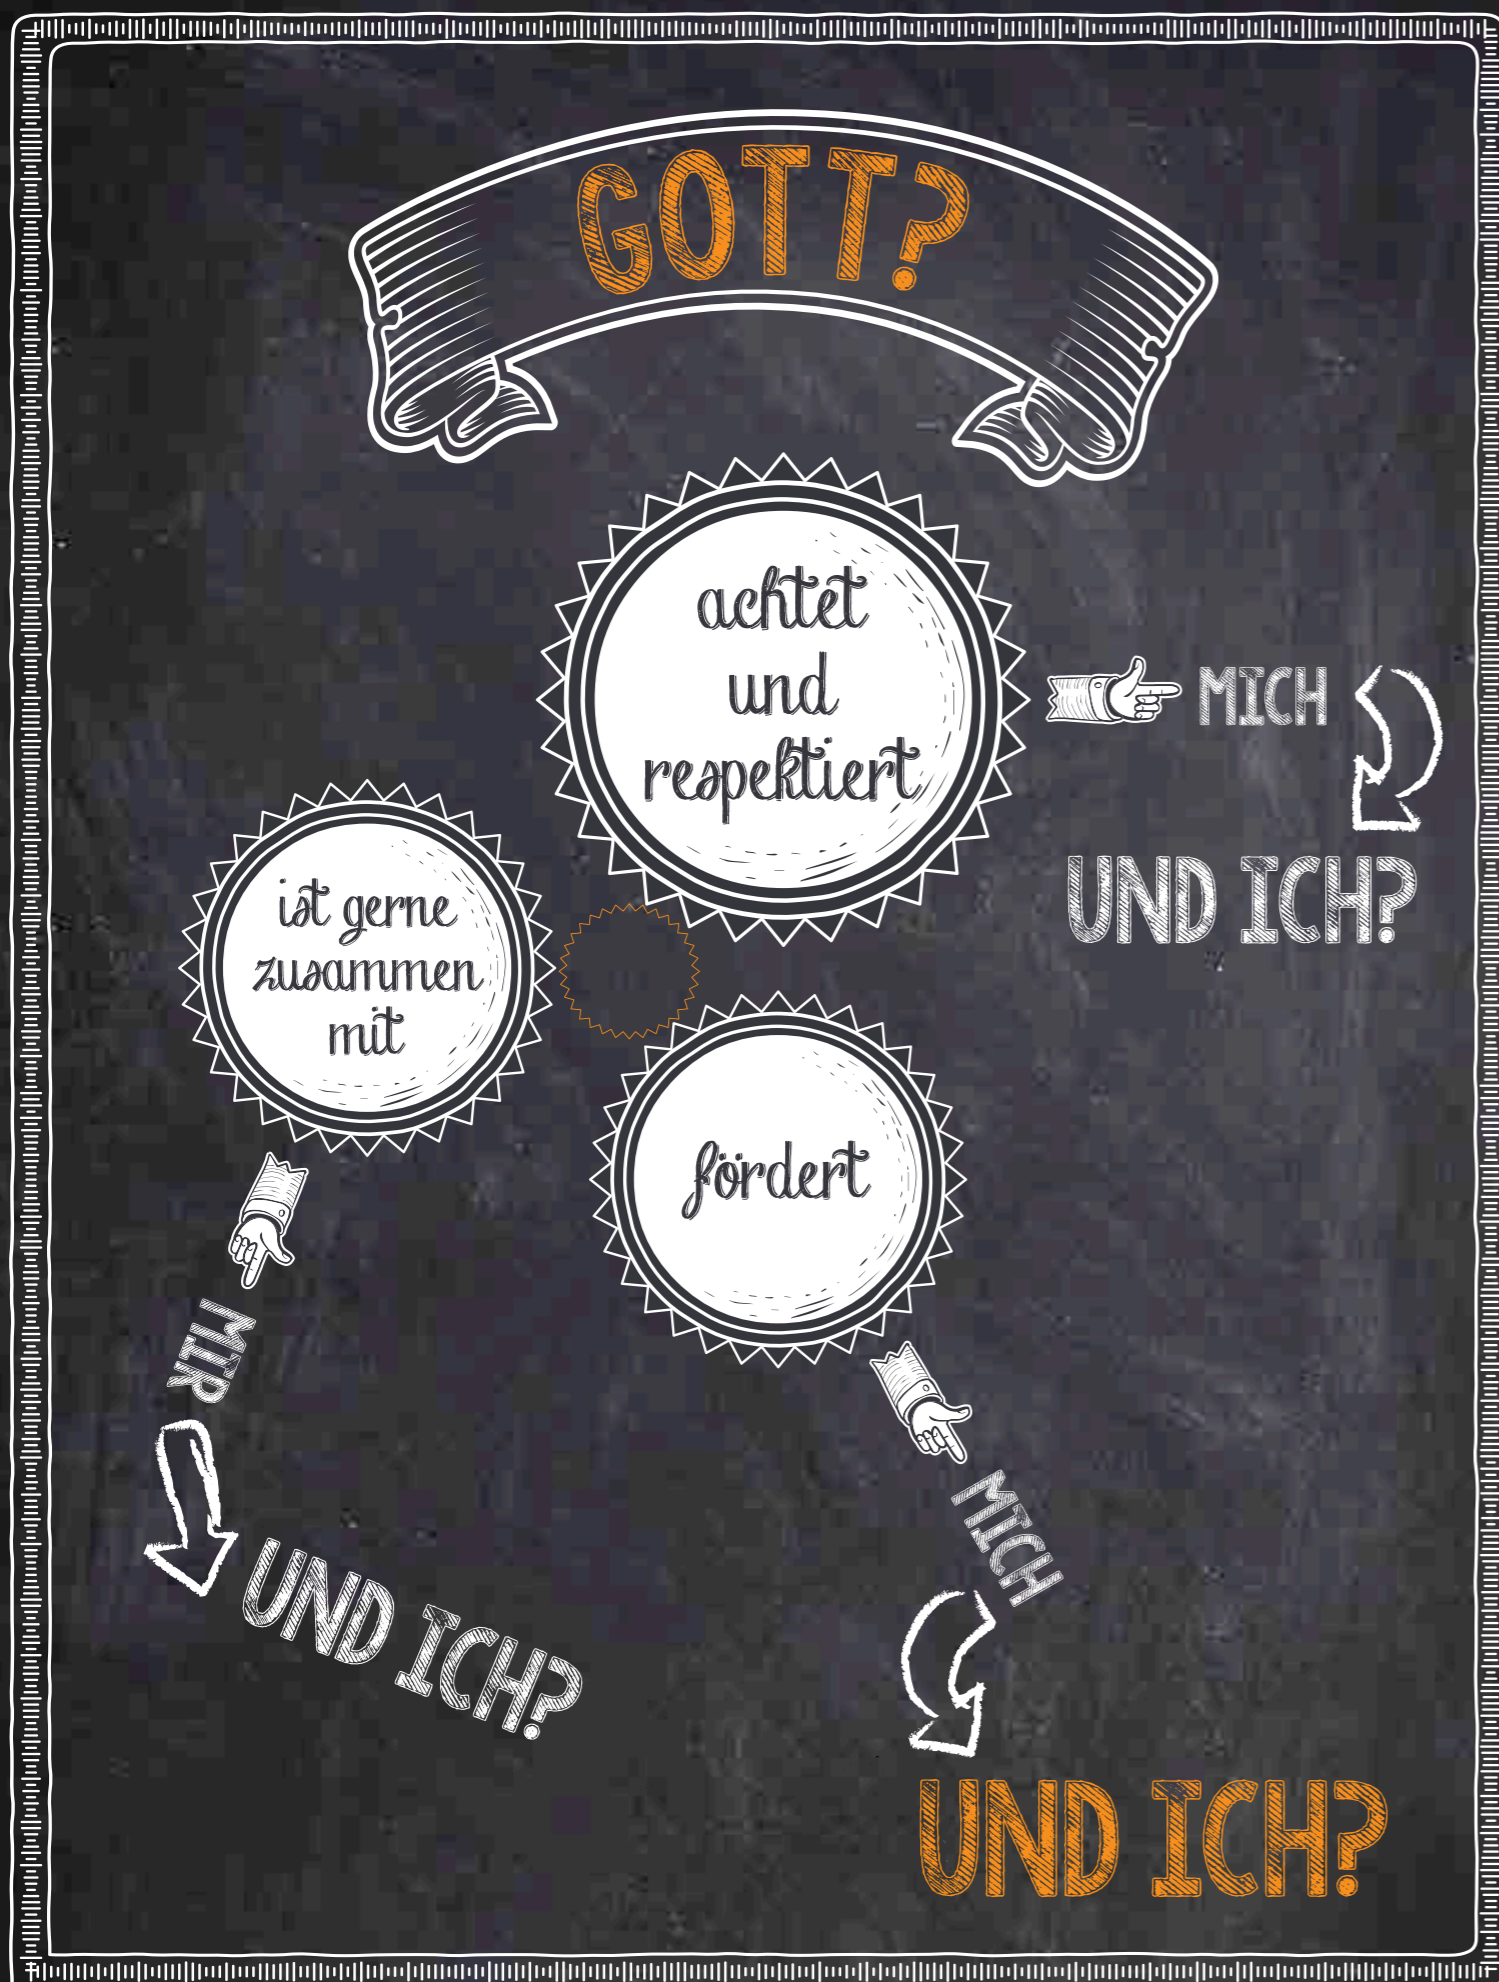 GOTT?
achtet
und
respektiert
MICH
UND ICH?
ist gerne
zusammen
mit
MIR
UND ICH?
fördert
MICH
UND ICH?